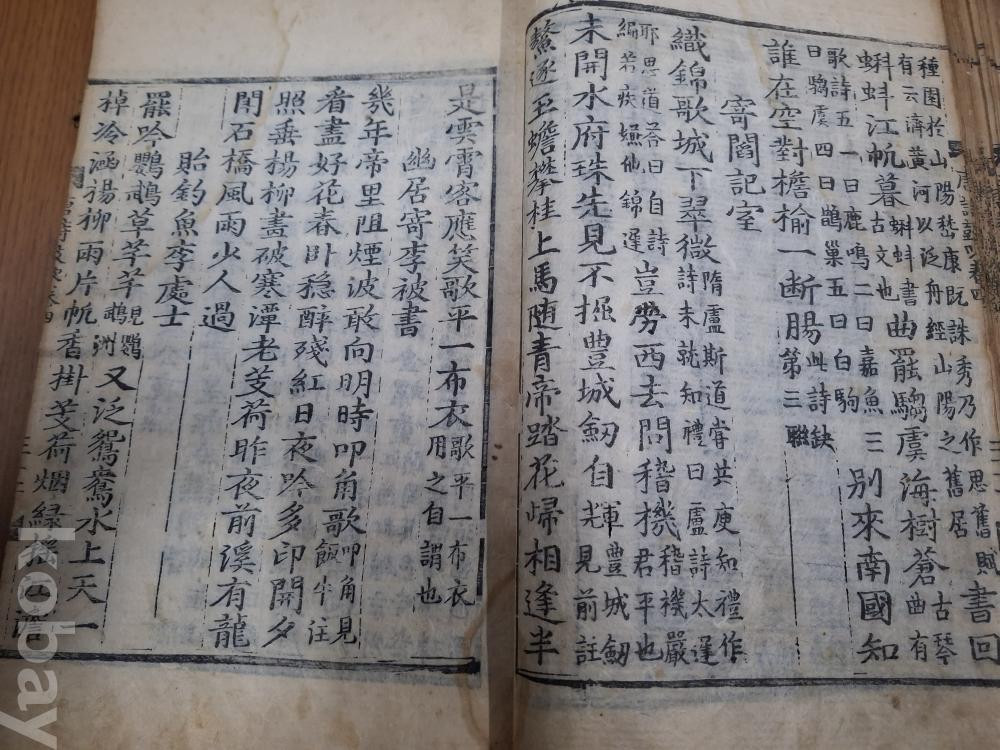 種園於山陽嵆康既誅秀乃作思舊賦
有云濟黃河以泛舟經山陽之舊居
書回
蝌蚪江帆暮
蝌蚪書
古文也
曲罷騶虞海樹蒼
古琴
曲有
歌詩五一曰鹿鳴二曰嘉魚三
曰騶虞四曰鵲巢五曰白駒
別來南國知
誰在空對檐榆一断腸
此詩缺
第三聯
寄閻記室
織錦歌城下翠微
隋盧斯道甞共庾知禮作
詩未就知禮曰盧詩太遲
耶思道荅曰自詩
編若疾嫌他錦遲
豈勞西去問稽機
稽機嚴
君平也
未開水府珠先見不掘豊城劒自輝
豐城劒
見前註
鰲逐玉蟾攀桂上馬随青帝踏花歸相逢半
是雲霄客應笑歌平一布衣
歌平一布衣
用之自謂也
幽居寄李被書
幾年帝里阻煙波敢向明時叩角歌
叩角見
飯牛注
看盡好花春卧穏醉殘紅日夜吟多印開夕
照垂楊柳畵破寒潭老芰荷昨夜前溪有龍
鬪石橋風雨少人過
貽釣魚李處士
罷吟鸚鵡草芊芊
見鸚
鵡洲
又泛鴛鴦水上天一
棹冷涵楊柳雨片帆香掛芰荷烟緑摇江澹
kobay